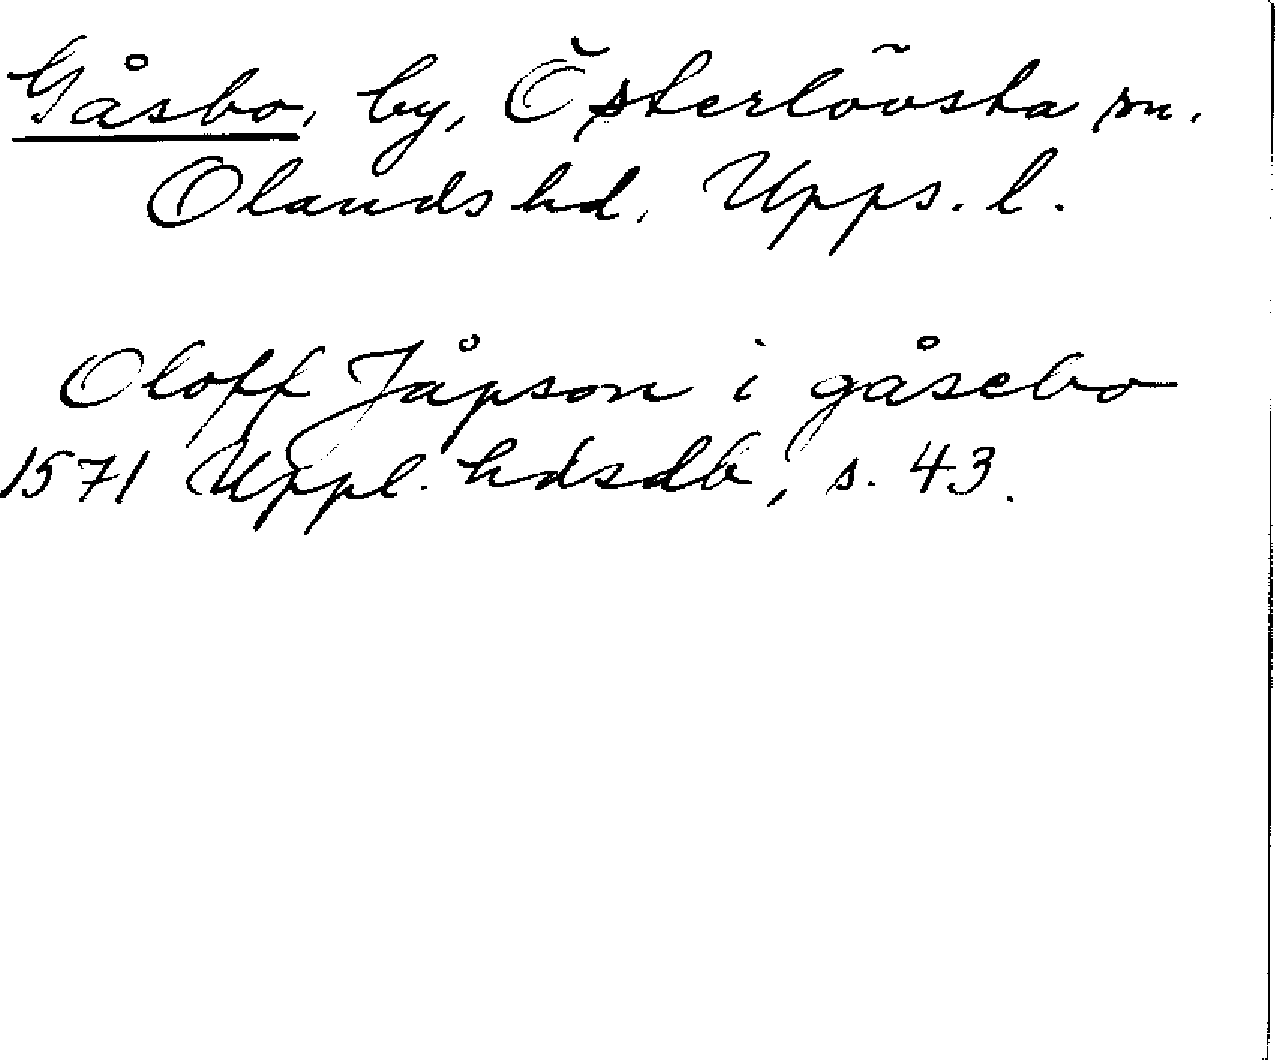 Gåsbo, by, Österlövsta sn.
Olands hd. Upps. l.
Oloff Jåpson i gåsebo
1571 Uppl. hdsdb, s. 43.